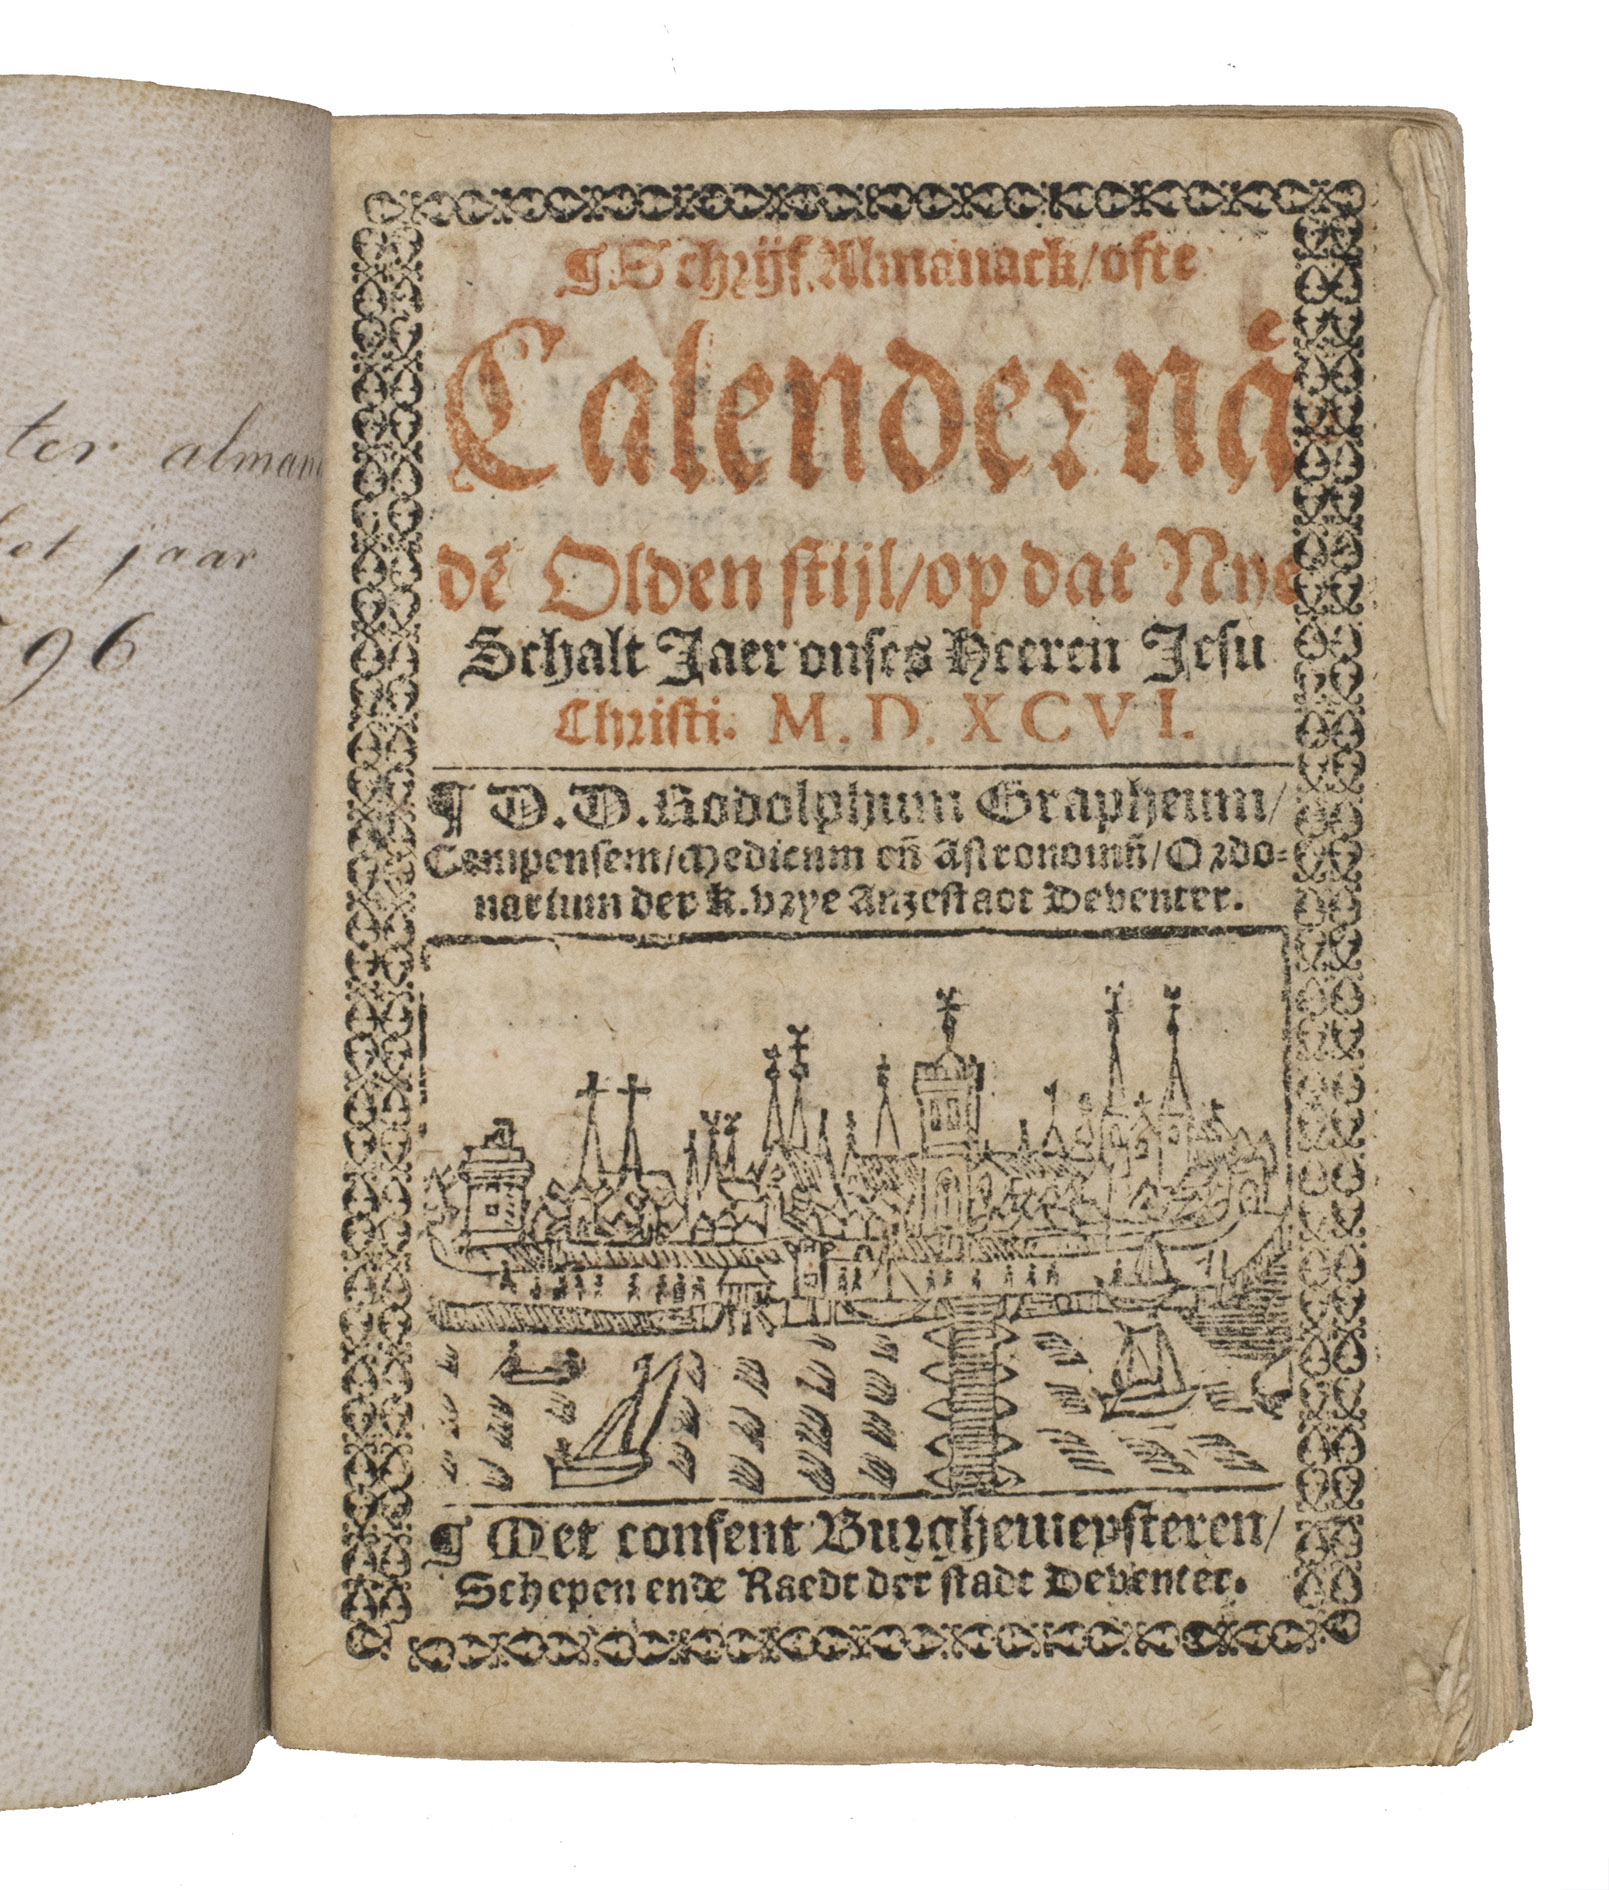 ter alman
et jaar
96
¶ Schrijf Almanack / ofte
Calender nȧ
dē Olden stijl / op dat Nye
Schalt Jaer onses Heeren Jesu
Christi. M. D. XCVI.
¶ D. D. Rodolphum Grapheum /
Campensem / Medicum eñ Astronomū / Ordo⸗
narium der K. vrye Anzestadt Deventer.
¶ Met consent Burghemeysteren /
Schepen ende Raedt der stadt Deventer.